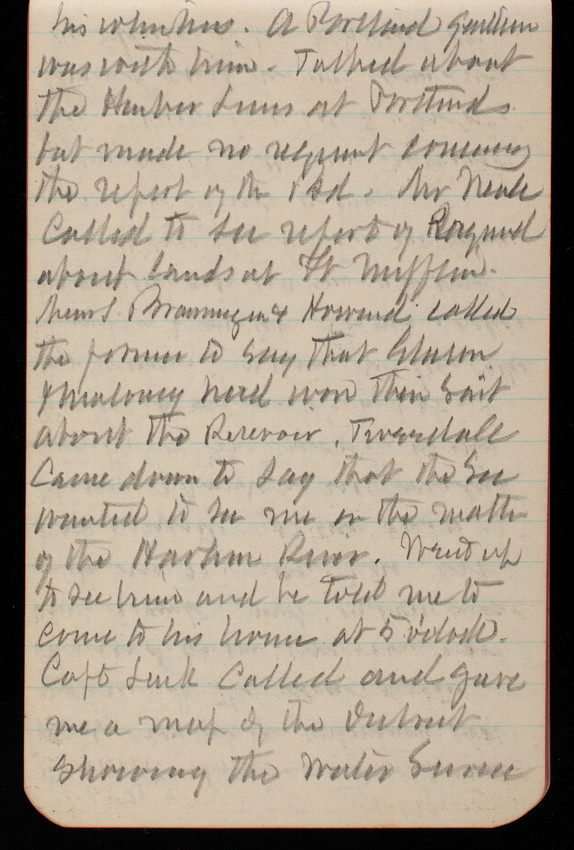 his whiskers. A Portland gentleman
was with him. Talked about
the Harbor Lines at Portland
but made no request concerning
the report of the Bd. Mr Neale
Called to see report of Raymond
about lands at Ft Mifflin.
Messrs. Brannigan & Howard called
the former to say that Gleason
& Maloney had won their Suit
about the Reservoir. Tweedale
Came down to say that the Sec
wanted to see me on the matter
of the Harlem River. Went up
to see him and he told me to
come to his house at 5 o'clock.
Capt Lusk Called and gave
me a map of the District
showing the Water Service